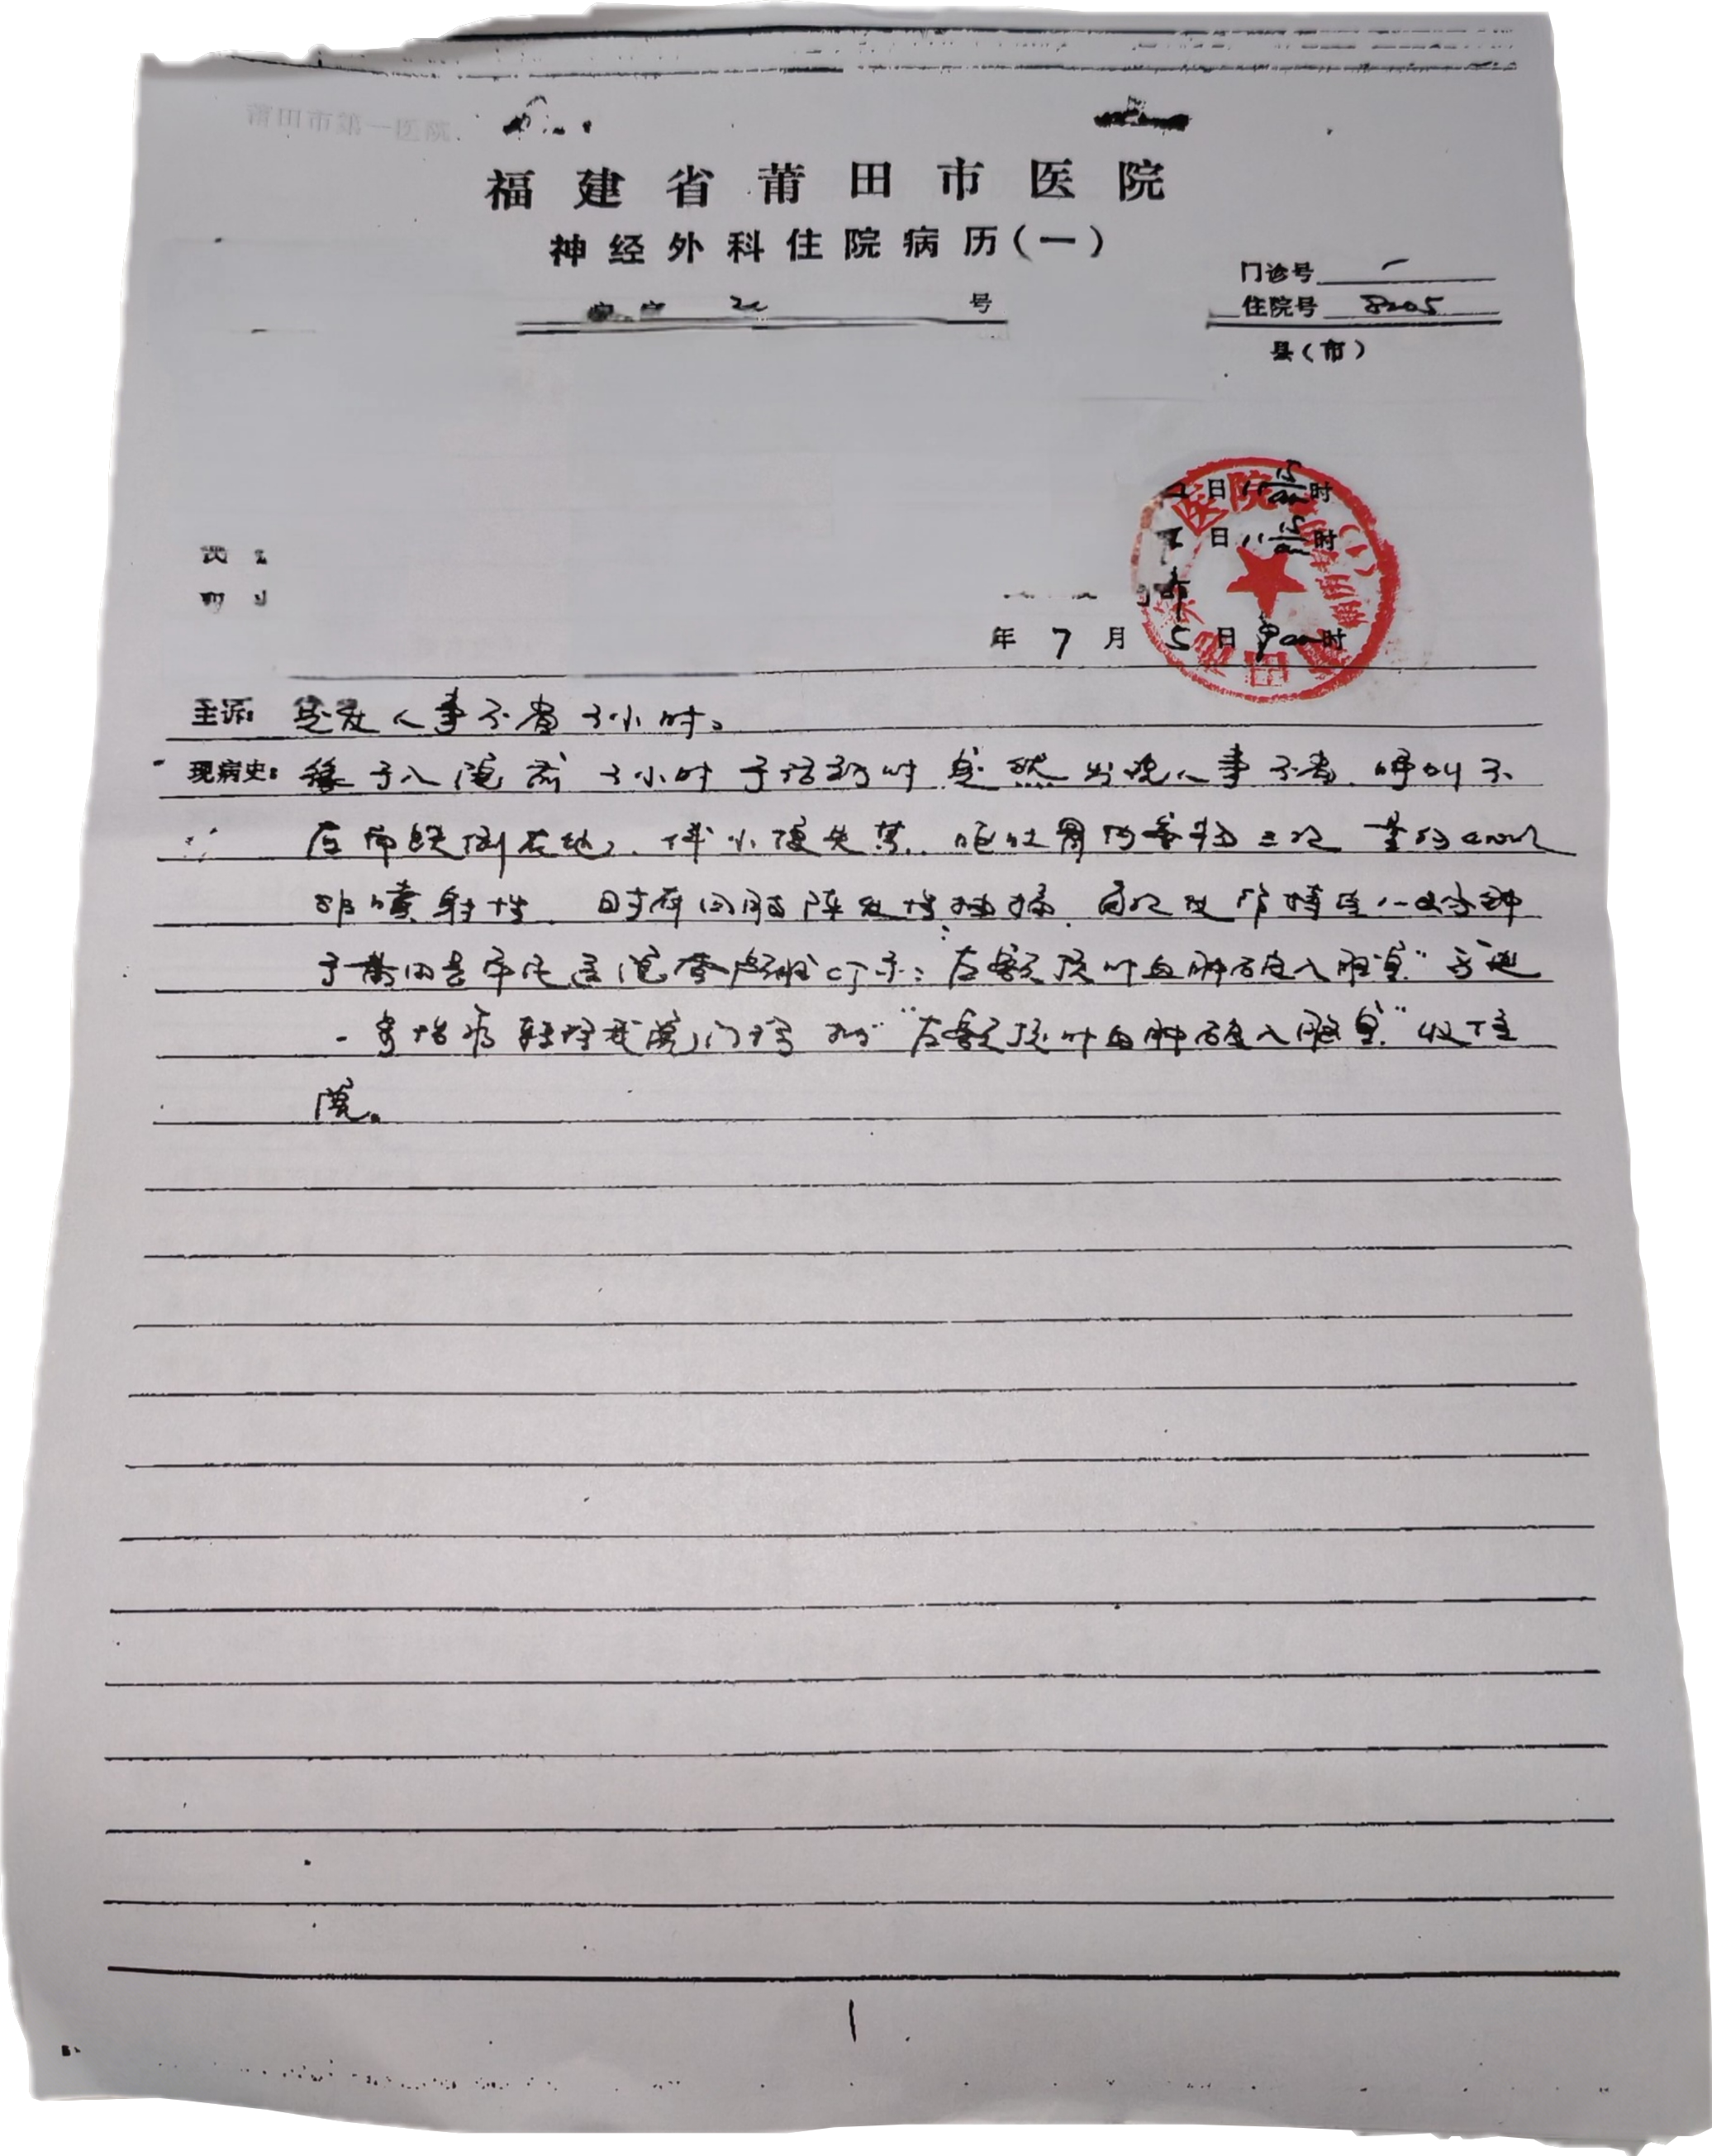 莆田市第一医院
福建省莆田市医院
神经外科住院病历(一)
门诊号
号
住院号 8205
县(市)
日 11 15 时
日 11 15 时
年 7 月 5 日 9 时
主诉: 突发人事不省 小时。
现病史: 缘于入院前 小时于活动时突然出现人事不省,呼叫不
应而跌倒在地,伴小便失禁,呕吐胃内容物三次,量约
非喷射性,时有四肢阵发性抽搐,每次发作持续 分钟
于莆田 医院查头颅CT示:"左额顶叶血肿破入脑室"
转诊我院,门诊拟"左额顶叶血肿破入脑室"收住
院。
1